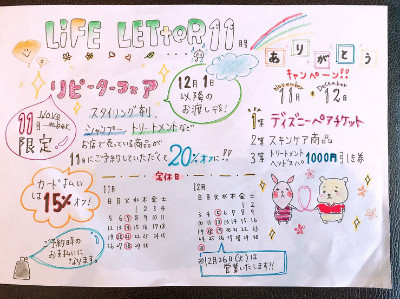 LIFE LETTER 11月号
ありがとう
キャンペーン!!
11月 November
12月 December
リピーターフェア
12月1日
以降の
お渡しです!
11月 November
限定!
スタイリング剤、
シャンプー、トリートメントなど
お店で売っている商品が
11月にご予約していただくと 20%オフに!!
1等 ディズニーペアチケット
2等 スキンケア商品
3等 トリートメント
ヘッドスパ 1000円引き券
カードばらい
は 15%オフ!
ご予約時の
お支払いに
なります。
定休日
11月
日月火水木金土
12月
日月火水木金土
※12月26日(火)は
営業いたします!!